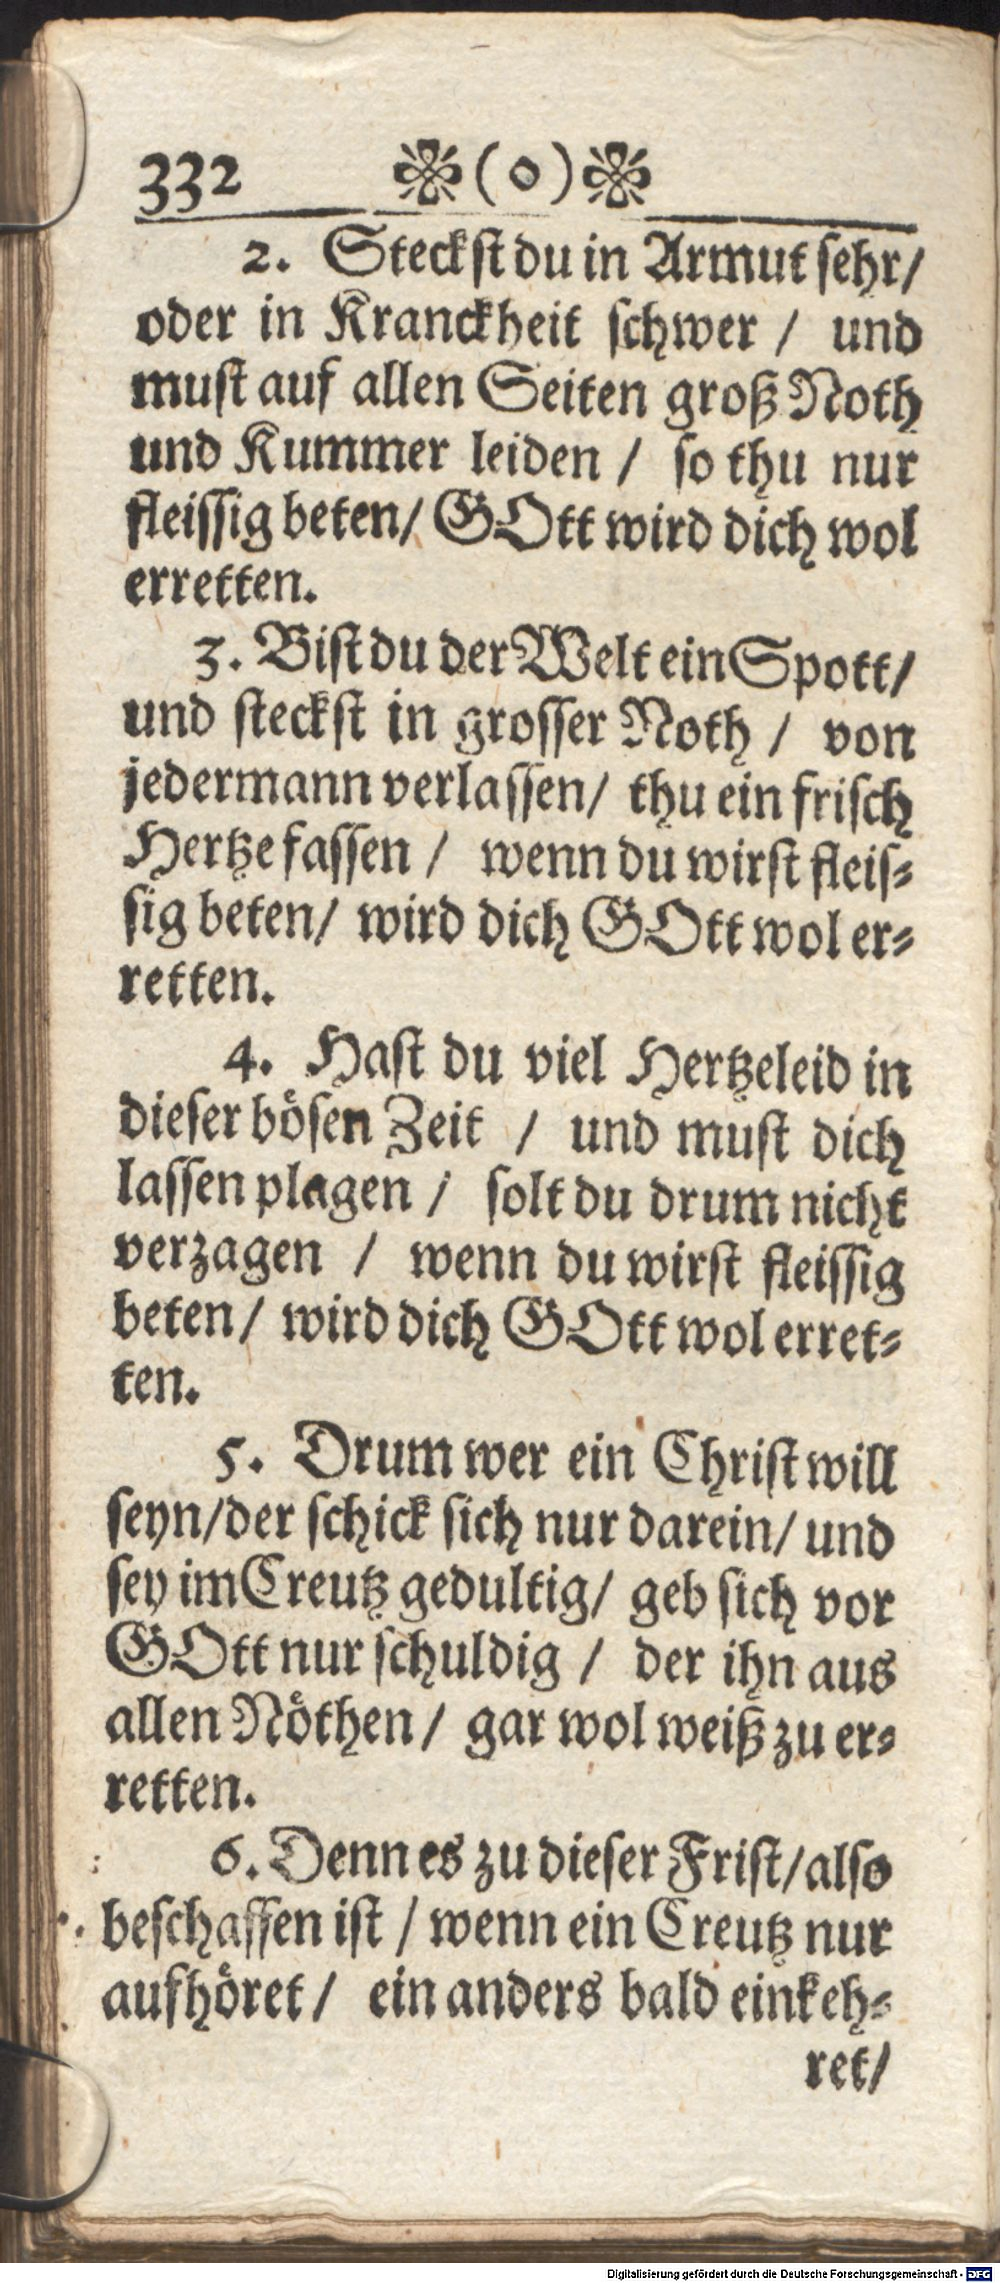 332 ❋(o)❋
2. Steckst du in Armut sehr/
oder in Kranckheit schwer / und
must auf allen Seiten groß Noth
und Kummer leiden / so thu nur
fleissig beten/ GOtt wird dich wol
erretten.
3. Bist du der Welt ein Spott/
und steckst in grosser Noth / von
jedermann verlassen/ thu ein frisch
Hertze fassen / wenn du wirst fleis-
sig beten/ wird dich GOtt wol er-
retten.
4. Hast du viel Hertzeleid in
dieser bösen Zeit / und must dich
lassen plagen / solt du drum nicht
verzagen / wenn du wirst fleissig
beten/ wird dich GOtt wol erret-
ten.
5. Drum wer ein Christ will
seyn/der schick sich nur darein/ und
sey im Creutz gedultig/ geb sich vor
GOtt nur schuldig / der ihn aus
allen Nöthen/ gar wol weiß zu er-
retten.
6. Denn es zu dieser Frist/also
beschaffen ist / wenn ein Creutz nur
aufhöret/ ein anders bald einkeh-
ret/
Digitalisierung gefördert durch die Deutsche Forschungsgemeinschaft - DFG